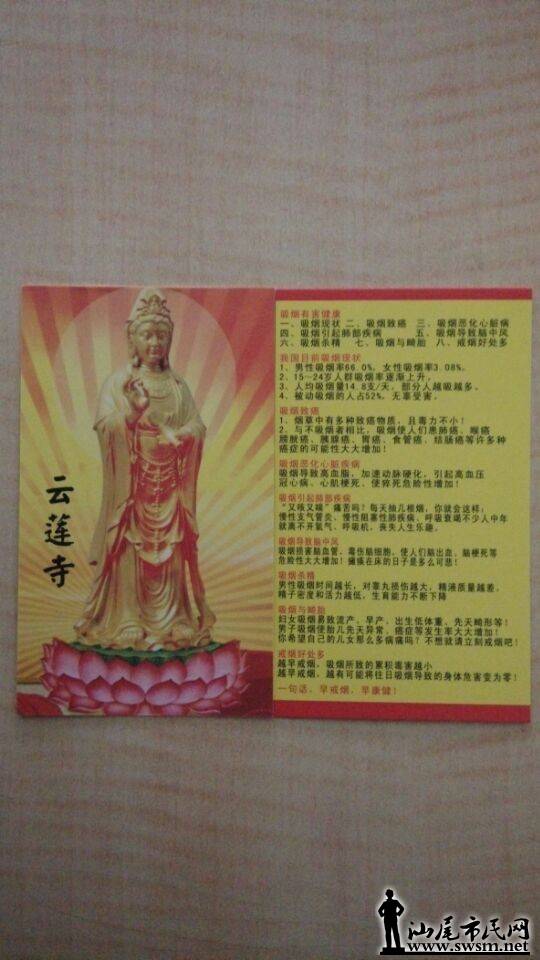 云莲寺
吸烟有害健康
一、吸烟现状 二、吸烟致癌 三、吸烟恶化心脏病
四、吸烟引起肺部疾病 五、吸烟导致脑中风
六、吸烟杀精 七、吸烟与畸胎 八、戒烟好处多
我国目前吸烟现状
1、男性吸烟率66.0%，女性吸烟率3.08%。
2、15—24岁人群吸烟率逐渐上升。
3、人均吸烟量14.8支/天，部分人越吸越多。
4、被动吸烟的人占52%，无辜受害。
吸烟致癌
1、烟草中有多种致癌物质，且毒力不小！
2、与不吸烟者相比，吸烟使人们患肺癌、喉癌
膀胱癌、胰腺癌、胃癌、食管癌、结肠癌等许多种
癌症的可能性大大增加！
吸烟恶化心脏疾病
吸烟导致高血脂，加速动脉硬化，引起高血压
冠心病、心肌梗死，使猝死危险性增加！
吸烟引起肺部疾病
“又咳又喘”痛苦吗？每天抽几根烟，你就会这样：
慢性支气管炎、慢性阻塞性肺疾病、呼吸衰竭不少人中年
就离不开氧气、呼吸机，丧失人生乐趣。
吸烟导致脑中风
吸烟损害脑血管，毒伤脑细胞，使人们脑出血、脑梗死等
危险性大大增加！瘫痪在床的日子是多么可悲！
吸烟杀精
男性吸烟时间越长，对睾丸损伤越大，精液质量越差，
精子密度和活力越低，生育能力不断下降
吸烟与畸胎
妇女吸烟易致流产、早产、出生低体重、先天畸形等！
男子吸烟使胎儿先天异常、癌症等发生率大大增加！
你希望自己的儿女那么多病痛吗？不想就请立刻戒烟吧！
戒烟好处多
越早戒烟，吸烟所致的累积毒害越小
越早戒烟，越有可能将往日吸烟导致的身体危害变为零！
一句话，早戒烟，早康健！
汕尾市民网
www.swsm.net